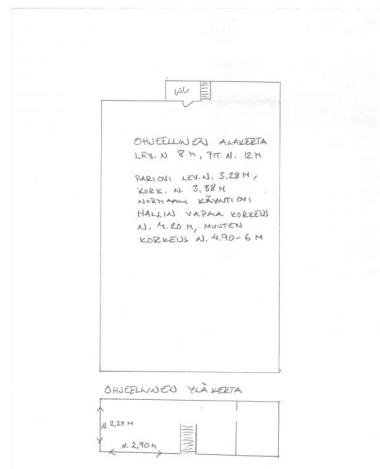 WC
OHJEELLINEN ALAKERTA
LEV. N 8 M, PIT. N. 12 M
PARIOVI LEV. N. 3,28 M,
KORK. N. 3,88 M
NORMAALI KÄYNTIOVI
HALLIN VAPAA KORKEUS
N. 4.20 M, MUUTEN
KORKEUS N. 4.90-6 M
OHJEELLINEN YLÄKERTA
N. 2,23 M
N. 2,90 M